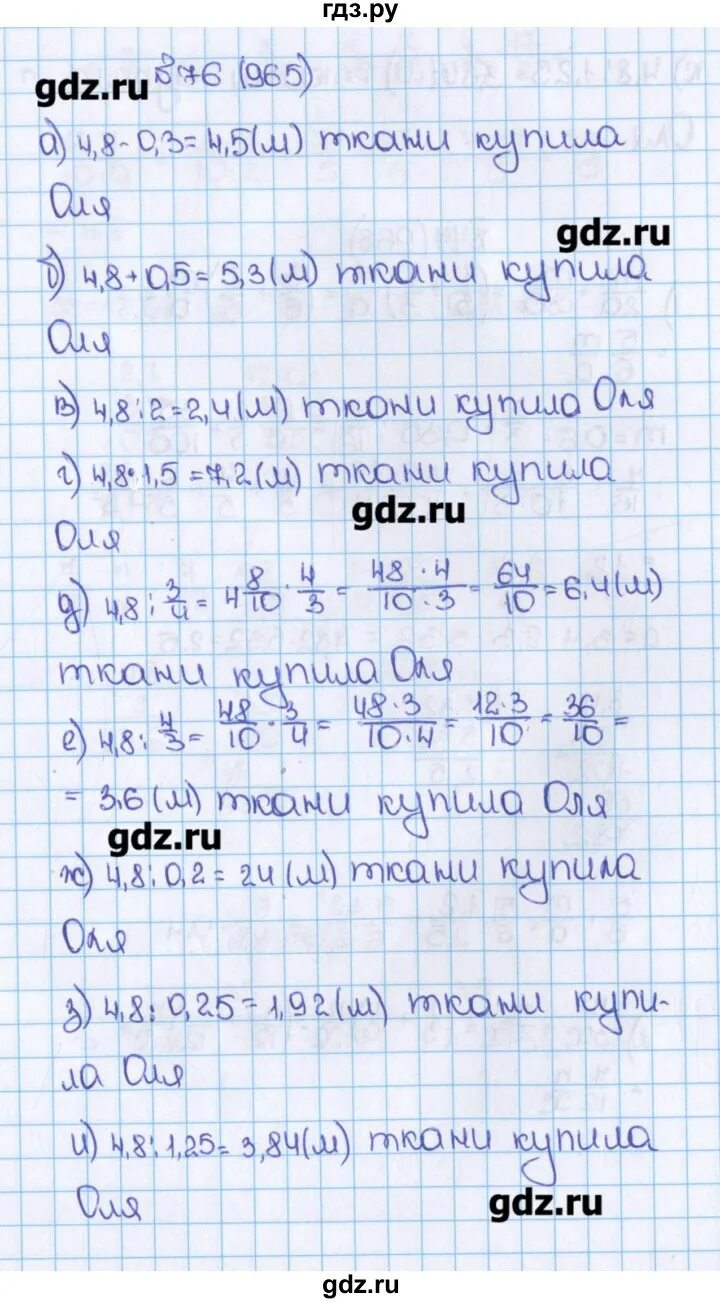 гдз.ру
№76 (965)
gdz.ru
а) 4,8 - 0,3 = 4,5 (м) ткани купила
Оля
gdz.ru
б) 4,8 + 0,5 = 5,3 (м) ткани купила
Оля
в) 4,8 : 2 = 2,4 (м) ткани купила Оля
г) 4,8 · 1,5 = 7,2 (м) ткани купила
gdz.ru
Оля
д) 4,8 : 3/4 = 4 8/10 · 4/3 = 48 · 4/10 · 3 = 64/10 = 6,4 (м)
ткани купила Оля
е) 4,8 : 4/3 = 48/10 · 3/4 = 48 · 3/10 · 4 = 12 · 3/10 = 36/10 =
= 3,6 (м) ткани купила Оля
gdz.ru
ж) 4,8 : 0,2 = 24 (м) ткани купила
Оля
з) 4,8 : 0,25 = 1,92 (м) ткани купи-
ла Оля
и) 4,8 : 1,25 = 3,84 (м) ткани купила
Оля
gdz.ru
gdz.ru